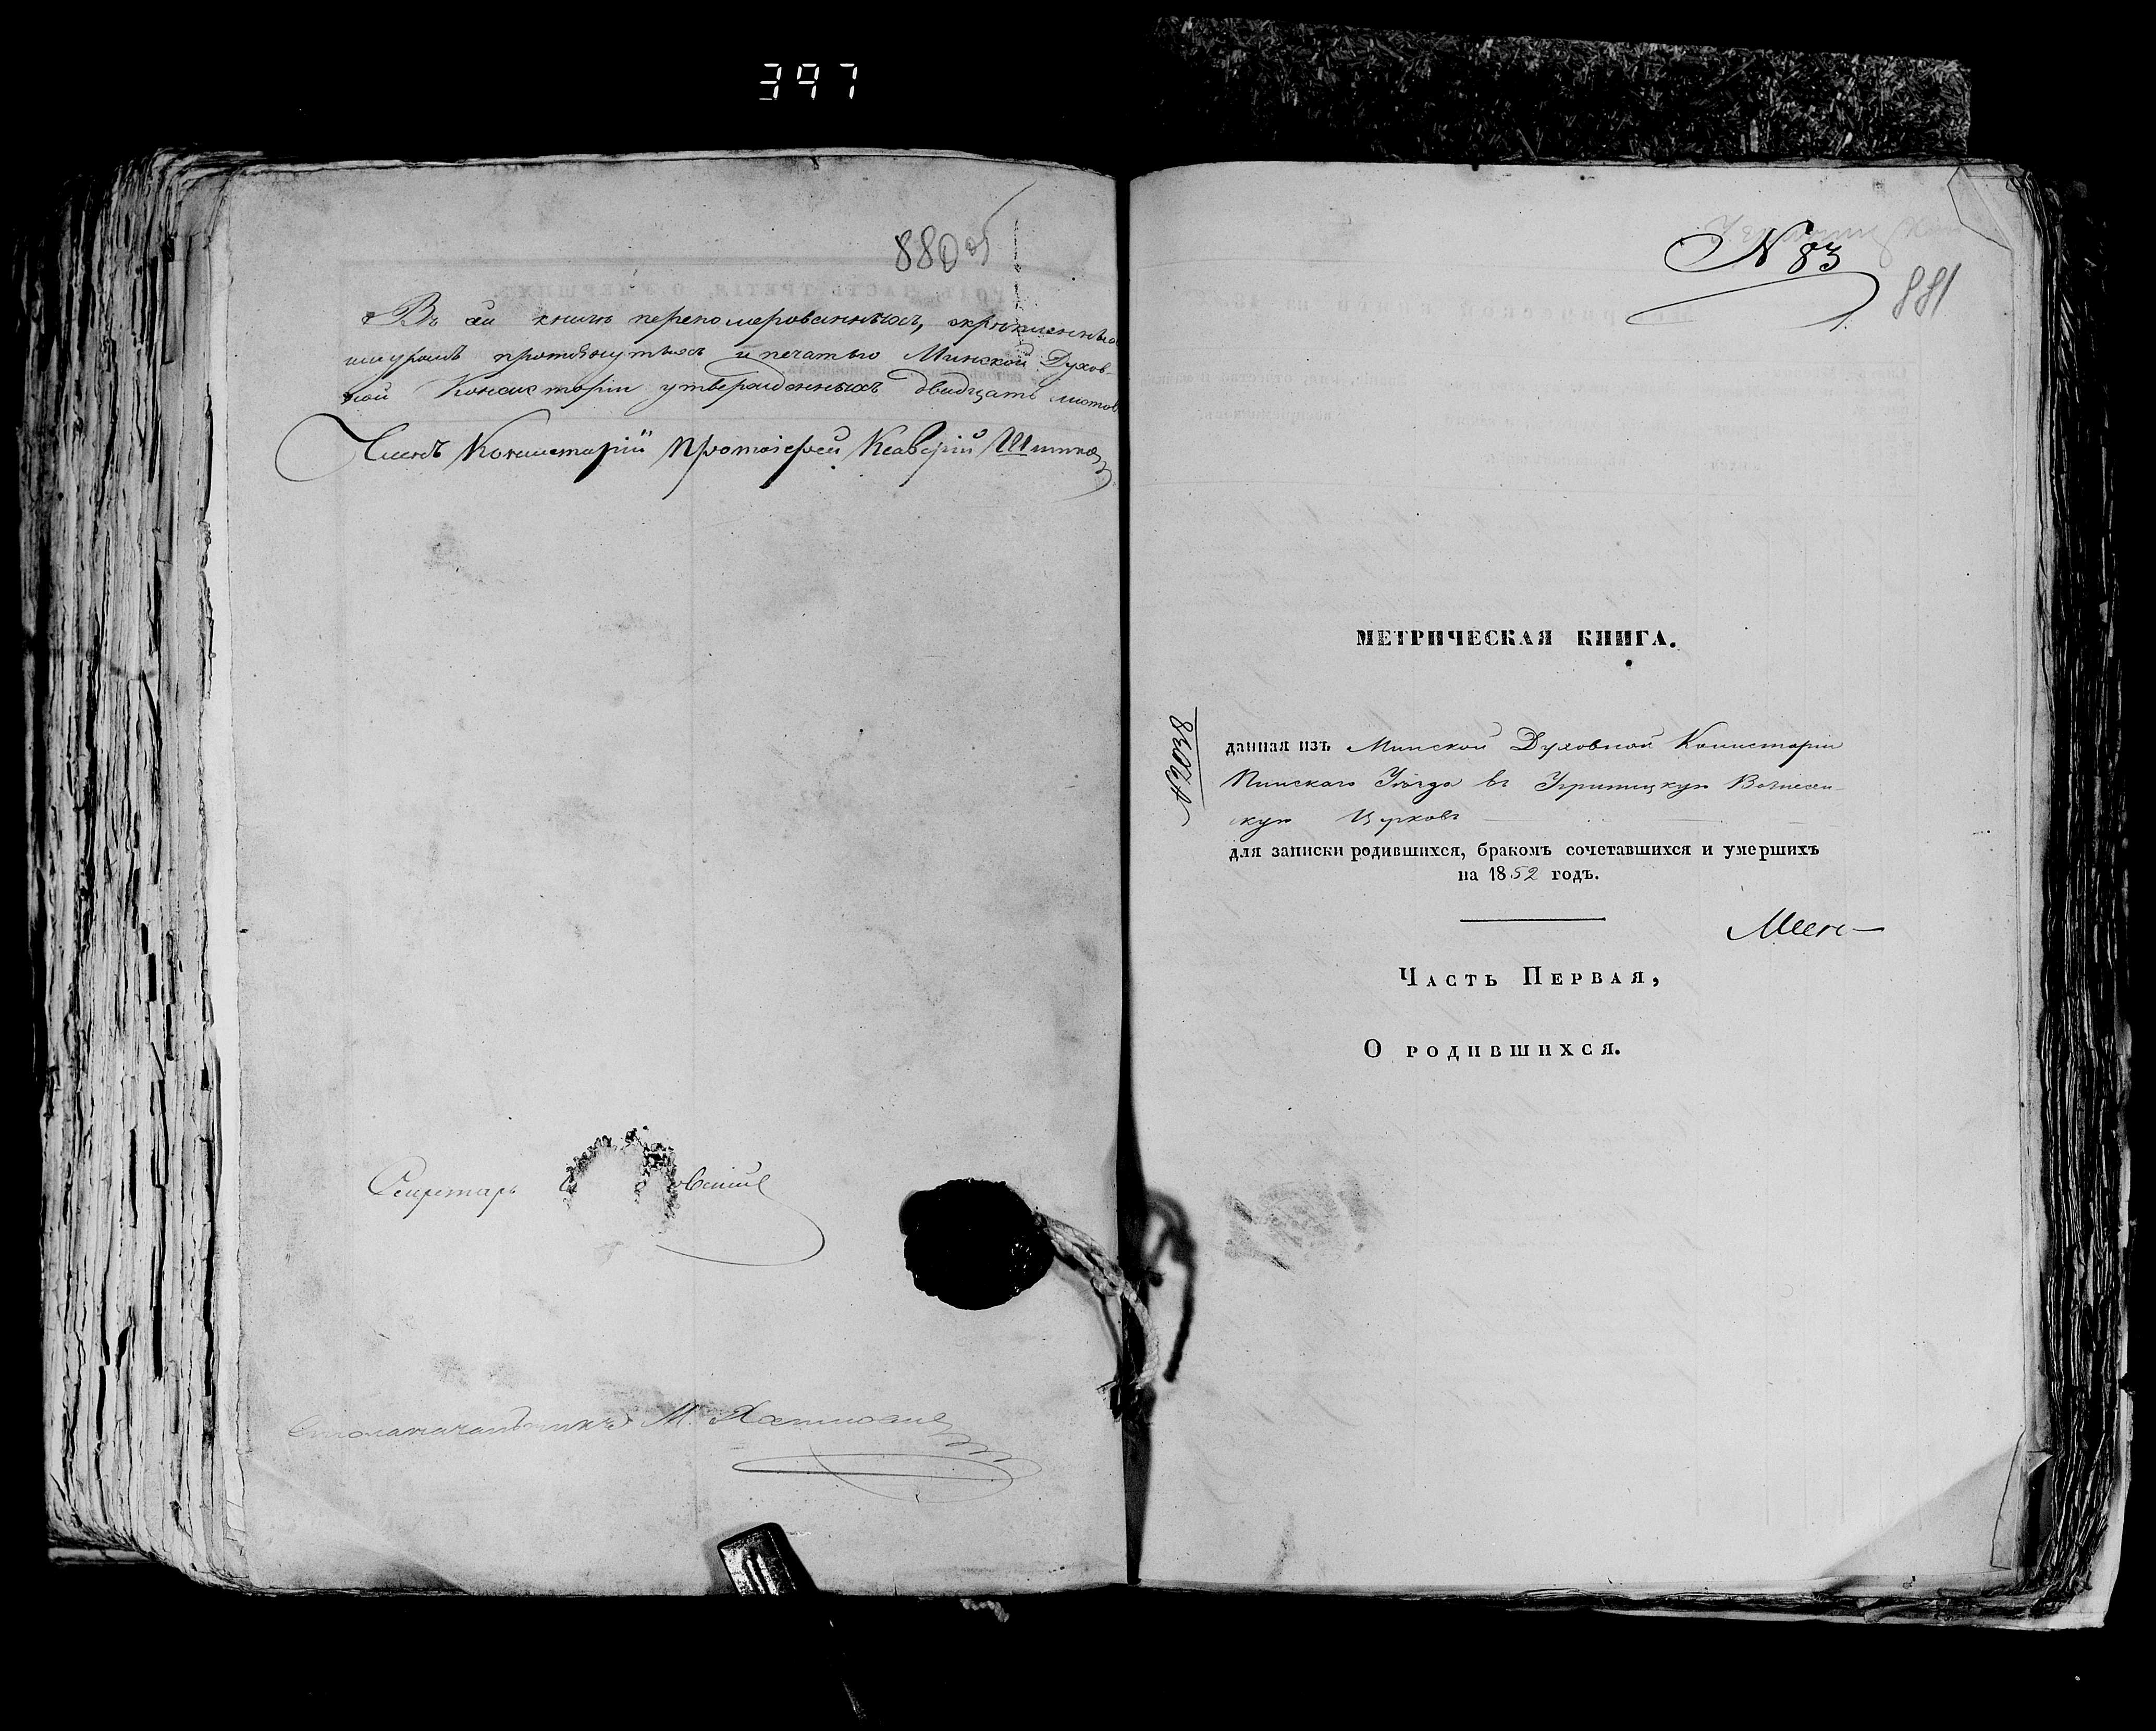 397
880 об
Въ сей книгѣ перепомерованныхъ, скрѣпленныхъ
шнуромъ протянутыхъ и печатью Минской Духов-
ной Консисторіи утвержденныхъ двадцать листов
Членъ Консисторіи Протоіерей Ксаверій
Секретарь
Столоначальникъ М.
N 83
881
МЕТРИЧЕСКАЯ КНИГА.
N 2038
данная изъ Минской Духовной Консисторіи
Пинскаго Уѣзда въ Угриницкую Вознесен-
скую Церковь
для записки родившихся, бракомъ сочетавшихся и умершихъ
на 1852 годъ.
Часть Первая,
О родившихся.